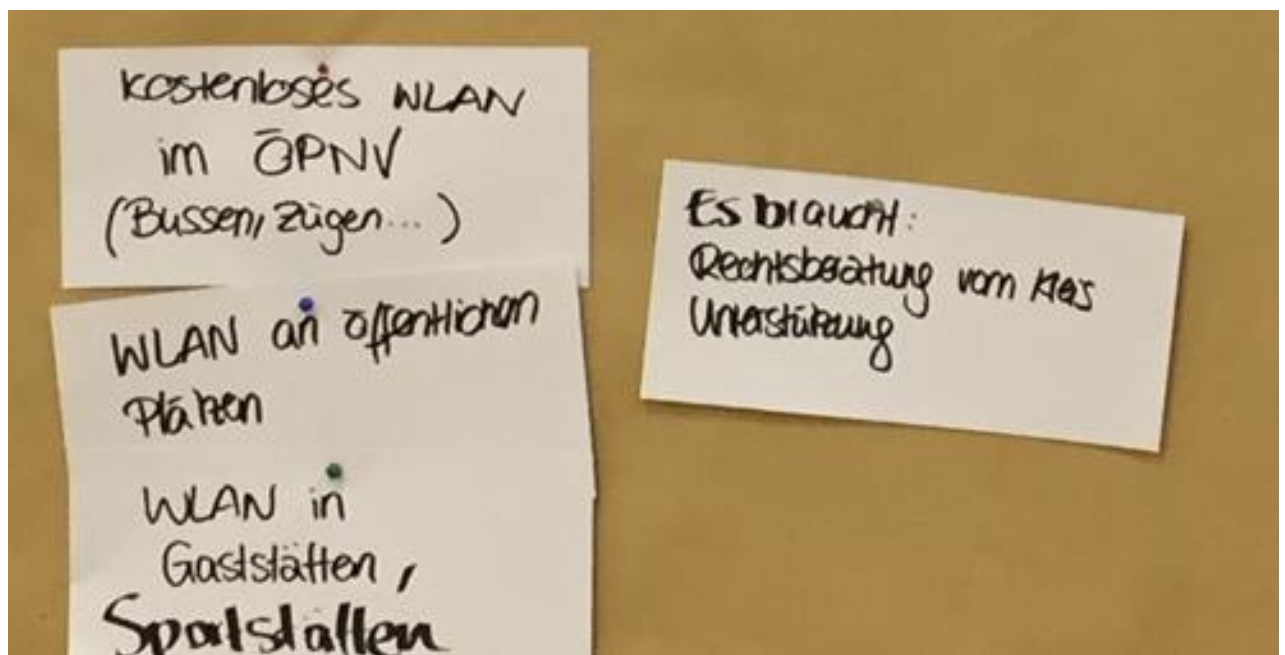 kostenloses WLAN
im ÖPNV
(Bussen, Zügen...)
WLAN an öffentlichen
Plätzen
WLAN in
Gaststätten,
Sportstätten
Es braucht:
Rechtsberatung vom Kreis
Unterstützung